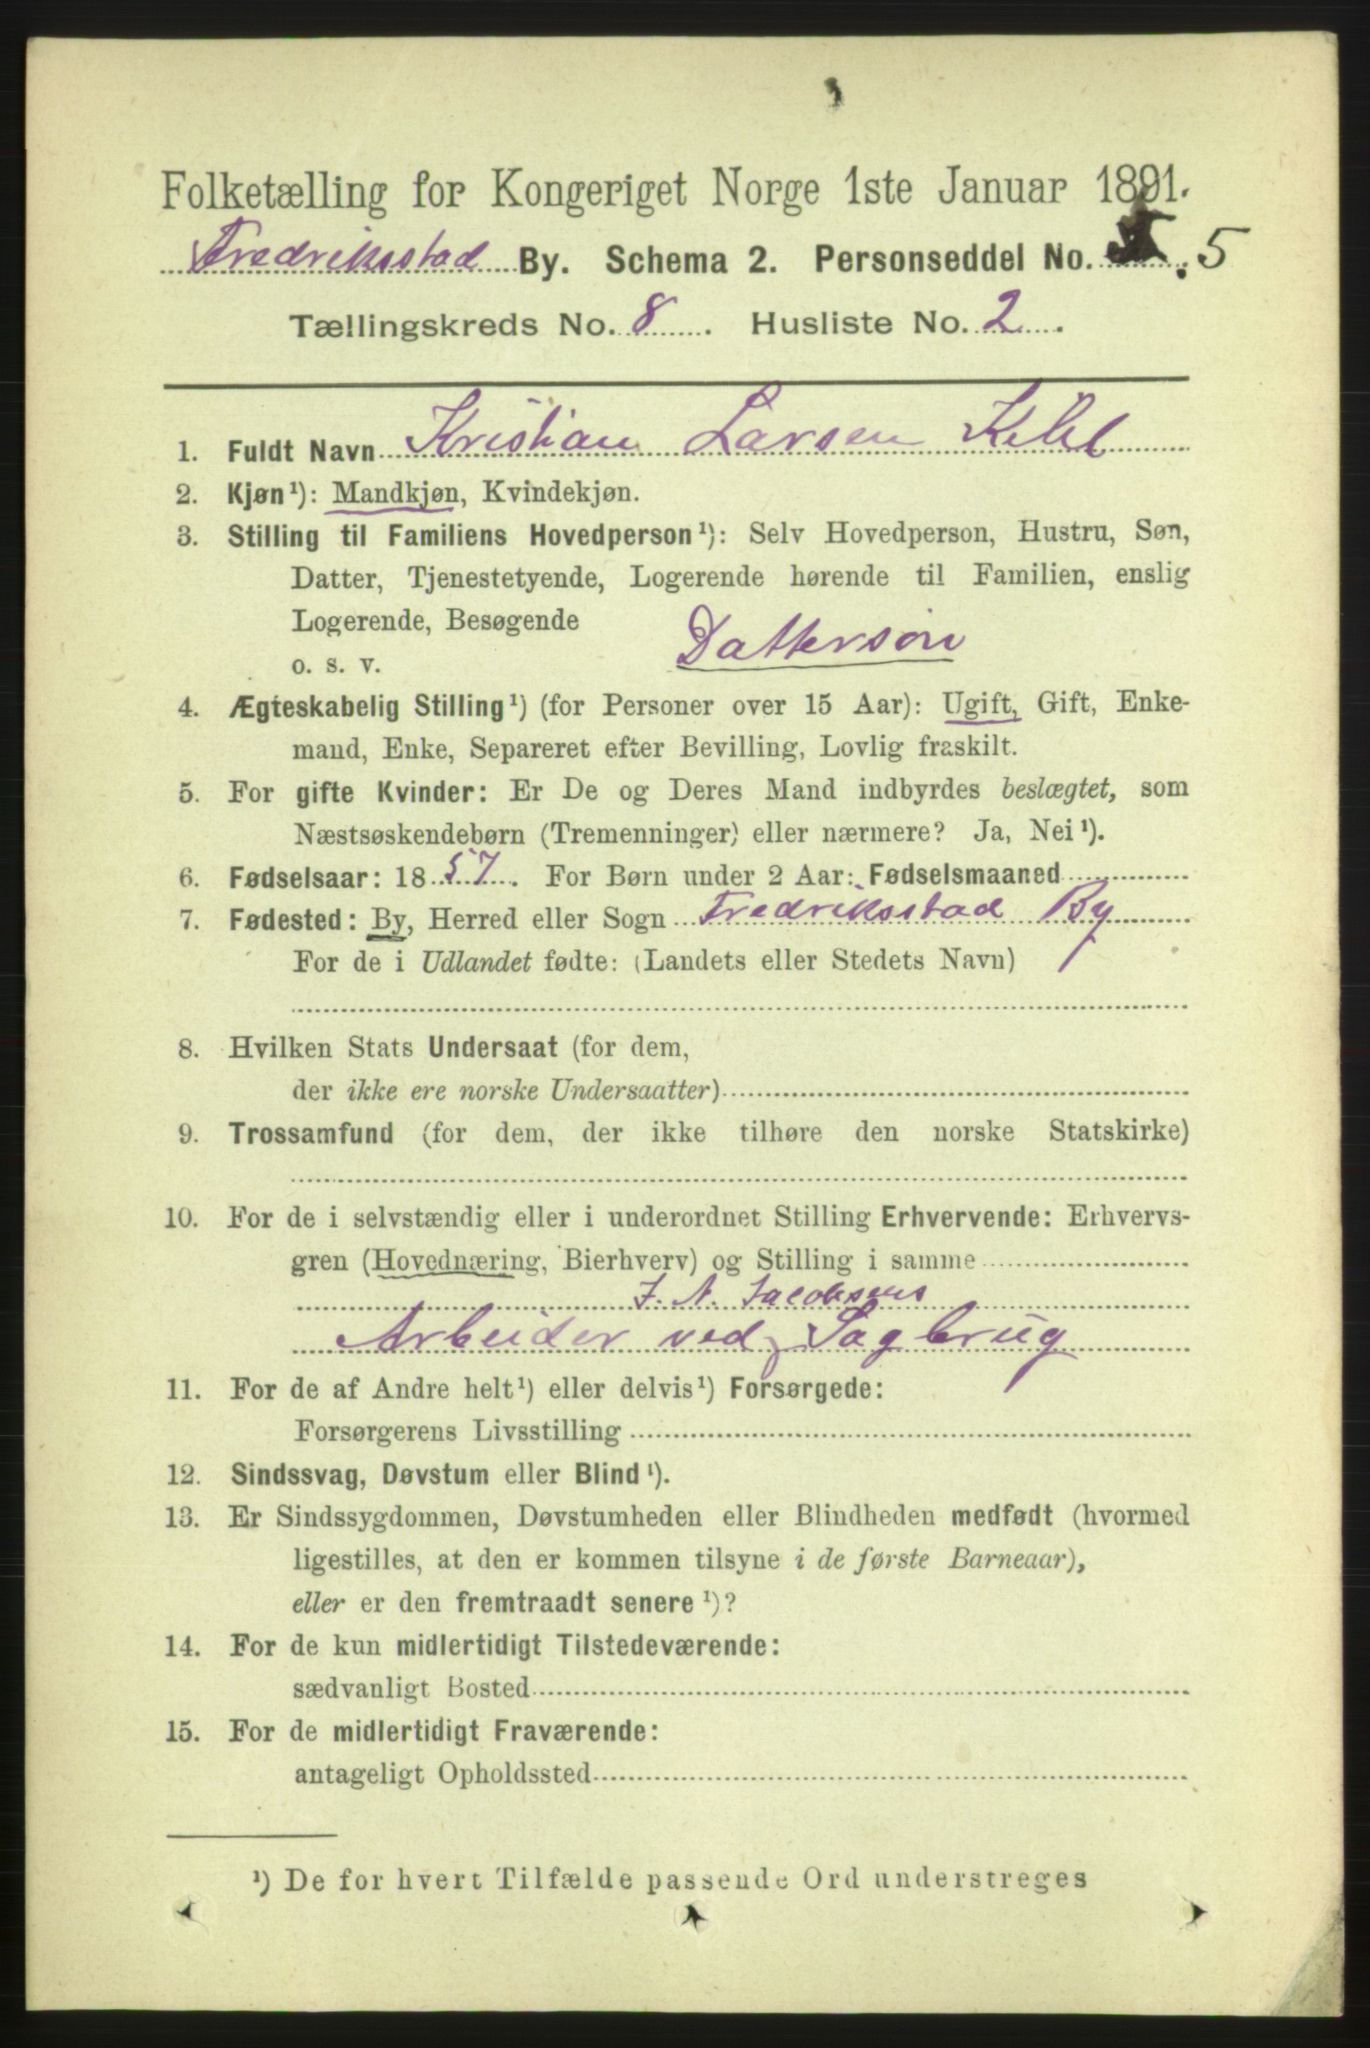 Folketælling for Kongeriget Norge 1ste Januar 1891.
Fredriksstad By. Schema 2. Personseddel No. 5
Tællingskreds No. 8. Husliste No. 2.
1. Fuldt Navn Kristian Larsen
2. Kjøn¹): Mandkjøn, Kvindekjøn.
3. Stilling til Familiens Hovedperson¹): Selv Hovedperson, Hustru, Søn,
Datter, Tjenestetyende, Logerende hørende til Familien, enslig
Logerende, Besøgende
o. s. v. Dattersøn
4. Ægteskabelig Stilling¹) (for Personer over 15 Aar): Ugift, Gift, Enke-
mand, Enke, Separeret efter Bevilling, Lovlig fraskilt.
5. For gifte Kvinder: Er De og Deres Mand indbyrdes beslægtet, som
Næstsøskendebørn (Tremenninger) eller nærmere? Ja, Nei¹).
6. Fødselsaar: 1857. For Børn under 2 Aar: Fødselsmaaned
7. Fødested: By, Herred eller Sogn Fredriksstad By
For de i Udlandet fødte: (Landets eller Stedets Navn)
8. Hvilken Stats Undersaat (for dem,
der ikke ere norske Undersaatter)
9. Trossamfund (for dem, der ikke tilhøre den norske Statskirke)
10. For de i selvstændig eller i underordnet Stilling Erhvervende: Erhvervs-
gren (Hovednæring, Bierhverv) og Stilling i samme
J. N. Jacobsens
Arbeider ved Sagbrug
11. For de af Andre helt¹) eller delvis¹) Forsørgede:
Forsørgerens Livsstilling
12. Sindssvag, Døvstum eller Blind¹).
13. Er Sindssygdommen, Døvstumheden eller Blindheden medfødt (hvormed
ligestilles, at den er kommen tilsyne i de første Barneaar),
eller er den fremtraadt senere¹)?
14. For de kun midlertidigt Tilstedeværende:
sædvanligt Bosted
15. For de midlertidigt Fraværende:
antageligt Opholdssted
¹) De for hvert Tilfælde passende Ord understreges